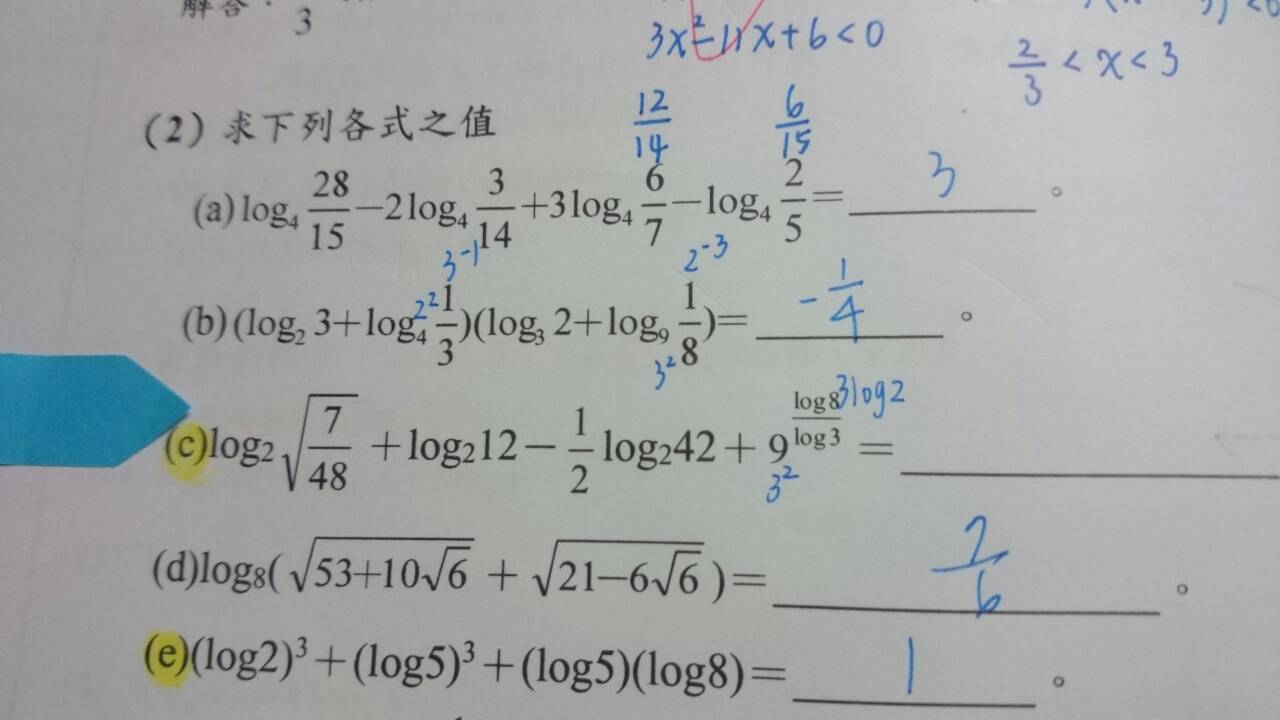 解答： 3
3x²-11x+6<0
2/3 < x < 3
(2) 求下列各式之值
12/14 6/15
(a) log₄ 28/15 − 2log₄ 3/14 + 3log₄ 6/7 − log₄ 2/5 = 3 。
3⁻¹ 2⁻³
(b) (log₂ 3 + log₄ 1/3)(log₃ 2 + log₉ 1/8) = -1/4 。
2² 3²
3log2
(c) log₂ √(7/48) + log₂12 − 1/2 log₂42 + 9^(log8/log3) =
3²
(d) log₈( √(53+10√6) + √(21−6√6) ) = 2/6 。
(e) (log2)³ + (log5)³ + (log5)(log8) = 1 。